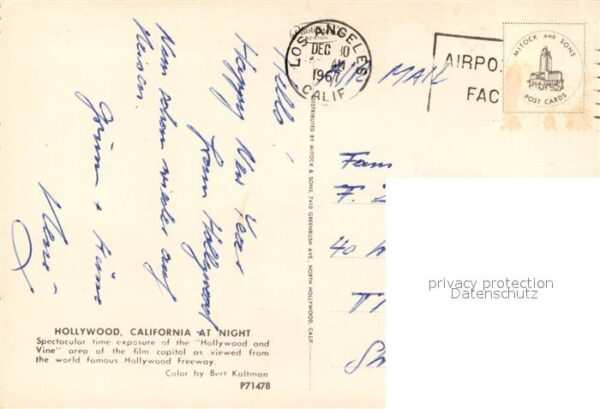 Hello!
Happy New Year
from Hollywood
Nun schon wieder auf
Reisen.
LOS ANGELES
DEC 30
AM
1961
CALIF
AIR MAIL
AIRPO
FAC
MITOCK AND SONS
POST CARDS
Fam
F.
40
Th
DISTRIBUTED BY MITOCK & SONS, 7410 GREENBUSH AVE., NORTH HOLLYWOOD, CALIF.
privacy protection
Datenschutz
HOLLYWOOD, CALIFORNIA AT NIGHT
Spectacular time exposure of the "Hollywood and
Vine" area of the film capital as viewed from
the world famous Hollywood Freeway.
Color by Bert Kaltman
P71478